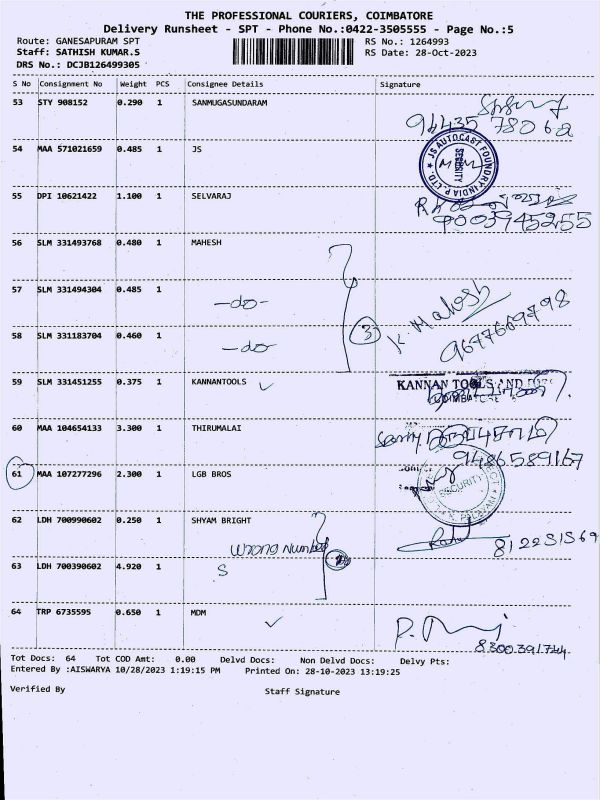 THE PROFESSIONAL COURIERS, COIMBATORE
Delivery Runsheet - SPT - Phone No.:0422-3505555 - Page No.:5
Route: GANESAPURAM SPT RS No.: 1264993
Staff: SATHISH KUMAR.S RS Date: 28-Oct-2023
DRS No.: DCJB126499305
S No Consignment No Weight PCS Consignee Details Signature
53 STY 908152 0.290 1 SANMUGASUNDARAM
94435 78062
54 MAA 571021659 0.485 1 JS
JS AUTOCAST FOUNDRY INDIA P. LTD. SECURITY
55 DPI 10621422 1.100 1 SELVARAJ
9003945255
56 SLM 331493768 0.480 1 MAHESH
57 SLM 331494304 0.485 1
-do-
K. Mahesh
9677669798
58 SLM 331183704 0.460 1
-do-
3
59 SLM 331451255 0.375 1 KANNANTOOLS
KANNAN TOOLS AND
COIMBATORE
60 MAA 104654133 3.300 1 THIRUMALAI
9486589167
61 MAA 107277296 2.300 1 LGB BROS
SECURITY
62 LDH 700990602 0.250 1 SHYAM BRIGHT
Wrong Number
63 LDH 700390602 4.920 1
S
64 TRP 6735595 0.650 1 MDM
8300391744
Tot Docs: 64 Tot COD Amt: 0.00 Delvd Docs: Non Delvd Docs: Delvy Pts:
Entered By :AISWARYA 10/28/2023 1:19:15 PM Printed On: 28-10-2023 13:19:25
Verified By Staff Signature